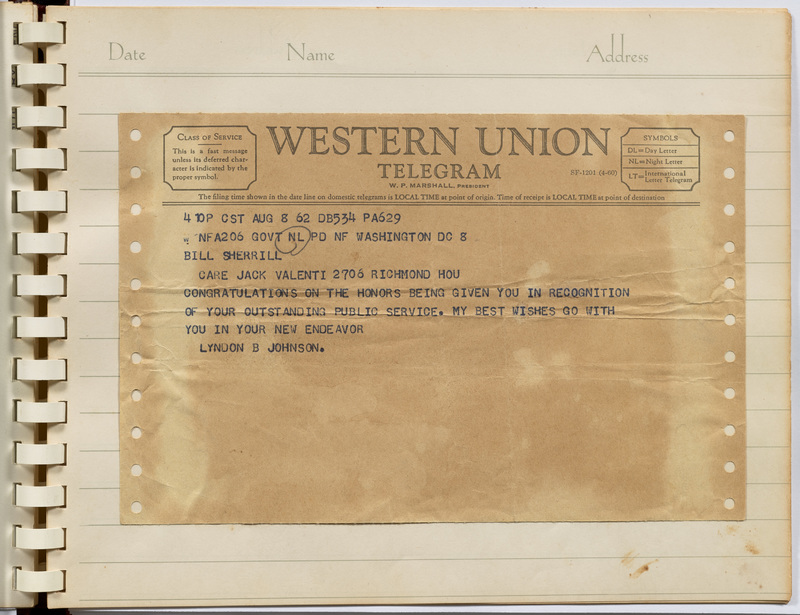 Date Name Address
CLASS OF SERVICE
This is a fast message
unless its deferred char-
acter is indicated by the
proper symbol.
WESTERN UNION
TELEGRAM
W. P. MARSHALL, PRESIDENT
SF-1201 (4-60)
SYMBOLS
DL=Day Letter
NL=Night Letter
LT=International Letter Telegram
The filing time shown in the date line on domestic telegrams is LOCAL TIME at point of origin. Time of receipt is LOCAL TIME at point of destination
4 10P CST AUG 8 62 DB534 PA629
W NFA206 GOVT NL PD NF WASHINGTON DC 8
BILL SHERRILL
CARE JACK VALENTI 2706 RICHMOND HOU
CONGRATULATIONS ON THE HONORS BEING GIVEN YOU IN RECOGNITION
OF YOUR OUTSTANDING PUBLIC SERVICE. MY BEST WISHES GO WITH
YOU IN YOUR NEW ENDEAVOR
LYNDON B JOHNSON.